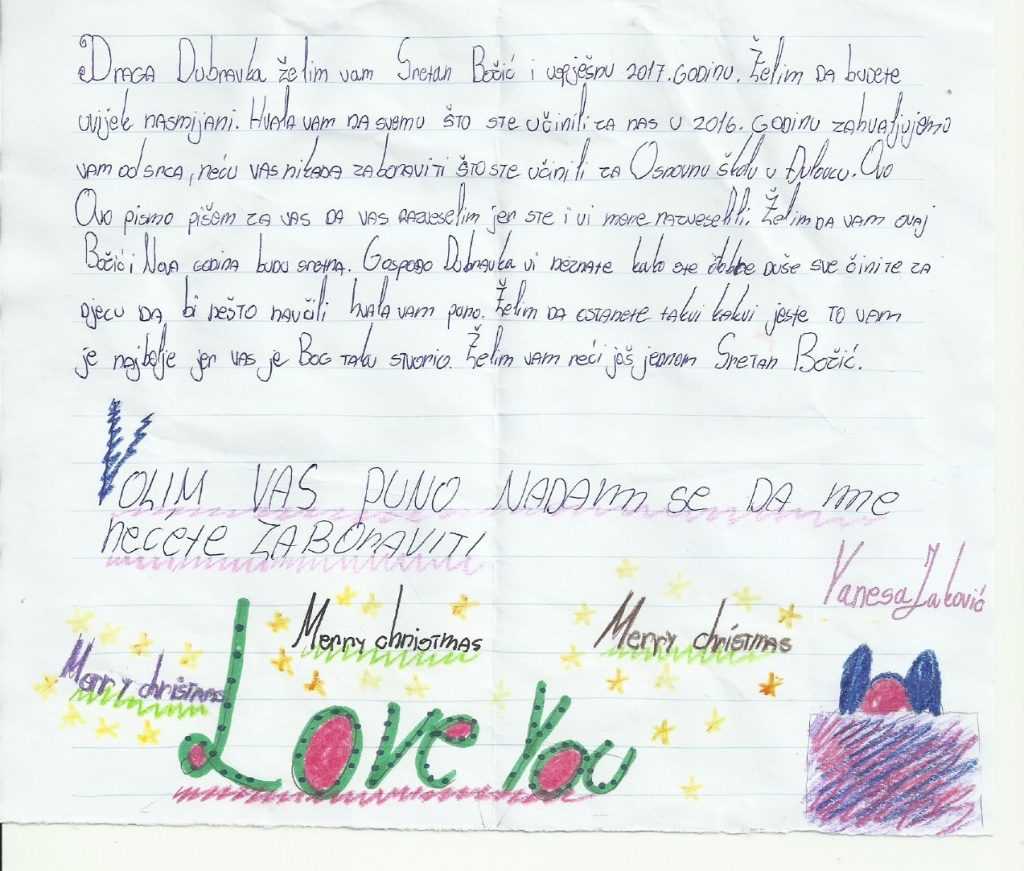 Draga Dubravka želim vam Sretan Božić i uspješnu 2017. godinu. Želim da budete
uvijek nasmijani. Hvala vam na svemu što ste učinili za nas u 2016. godinu zahvaljujemo
vam od srca, neću vas nikada zaboraviti što ste učinili za Osnovnu školu u Đulovcu. Ovo
Ovo pismo pišem za vas da vas razveselim jer ste i vi mene razveselili. Želim da vam ovaj
Božić i Nova godina budu sretna. Gospođo Dubravka vi neznate kako ste dobre duše sve činite za
djecu da bi nešto naučili hvala vam puno. Želim da ostanete takvi kakvi jeste to vam
je najbolje jer vas je Bog takv stvorio. Želim vam reći još jednom Sretan Božić.
VOLIM VAS PUNO NADAM SE DA me
nećete ZABORAVITI
Vanesa Jaković
Merry christmas
Merry christmas
Merry christmas
Love You